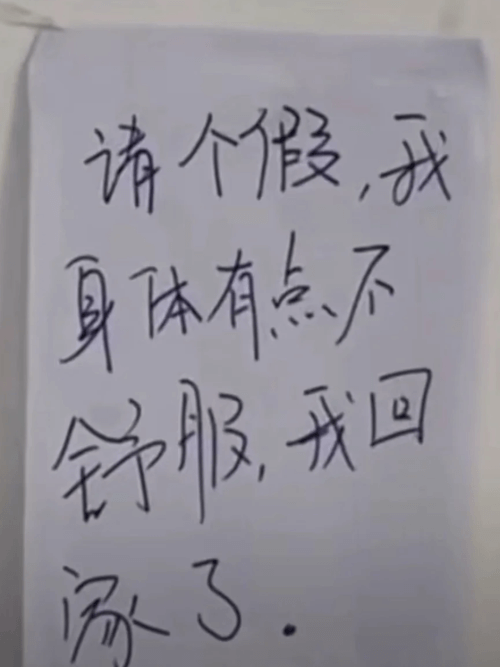 请个假,我
身体有点不
舒服,我回
家了.